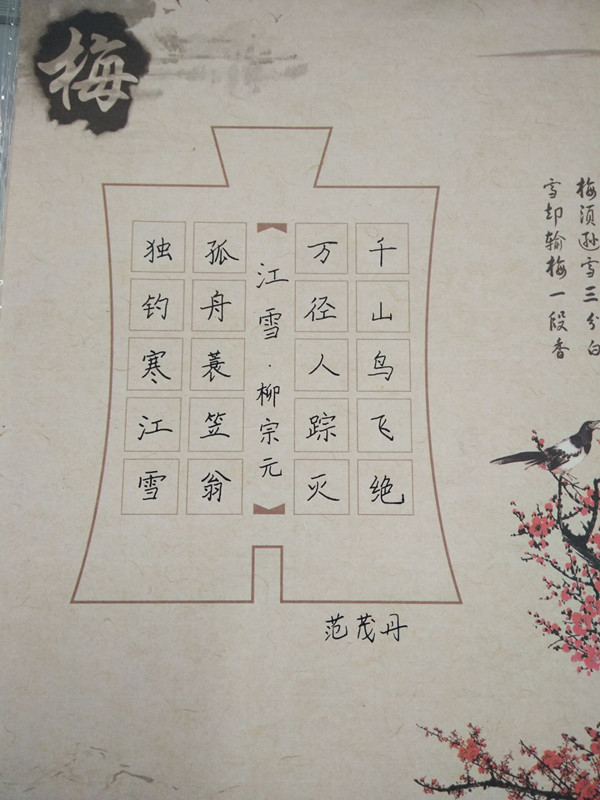 梅
梅须逊雪三分白
雪却输梅一段香
千山鸟飞绝
万径人踪灭
江雪·柳宗元
孤舟蓑笠翁
独钓寒江雪
范茂丹